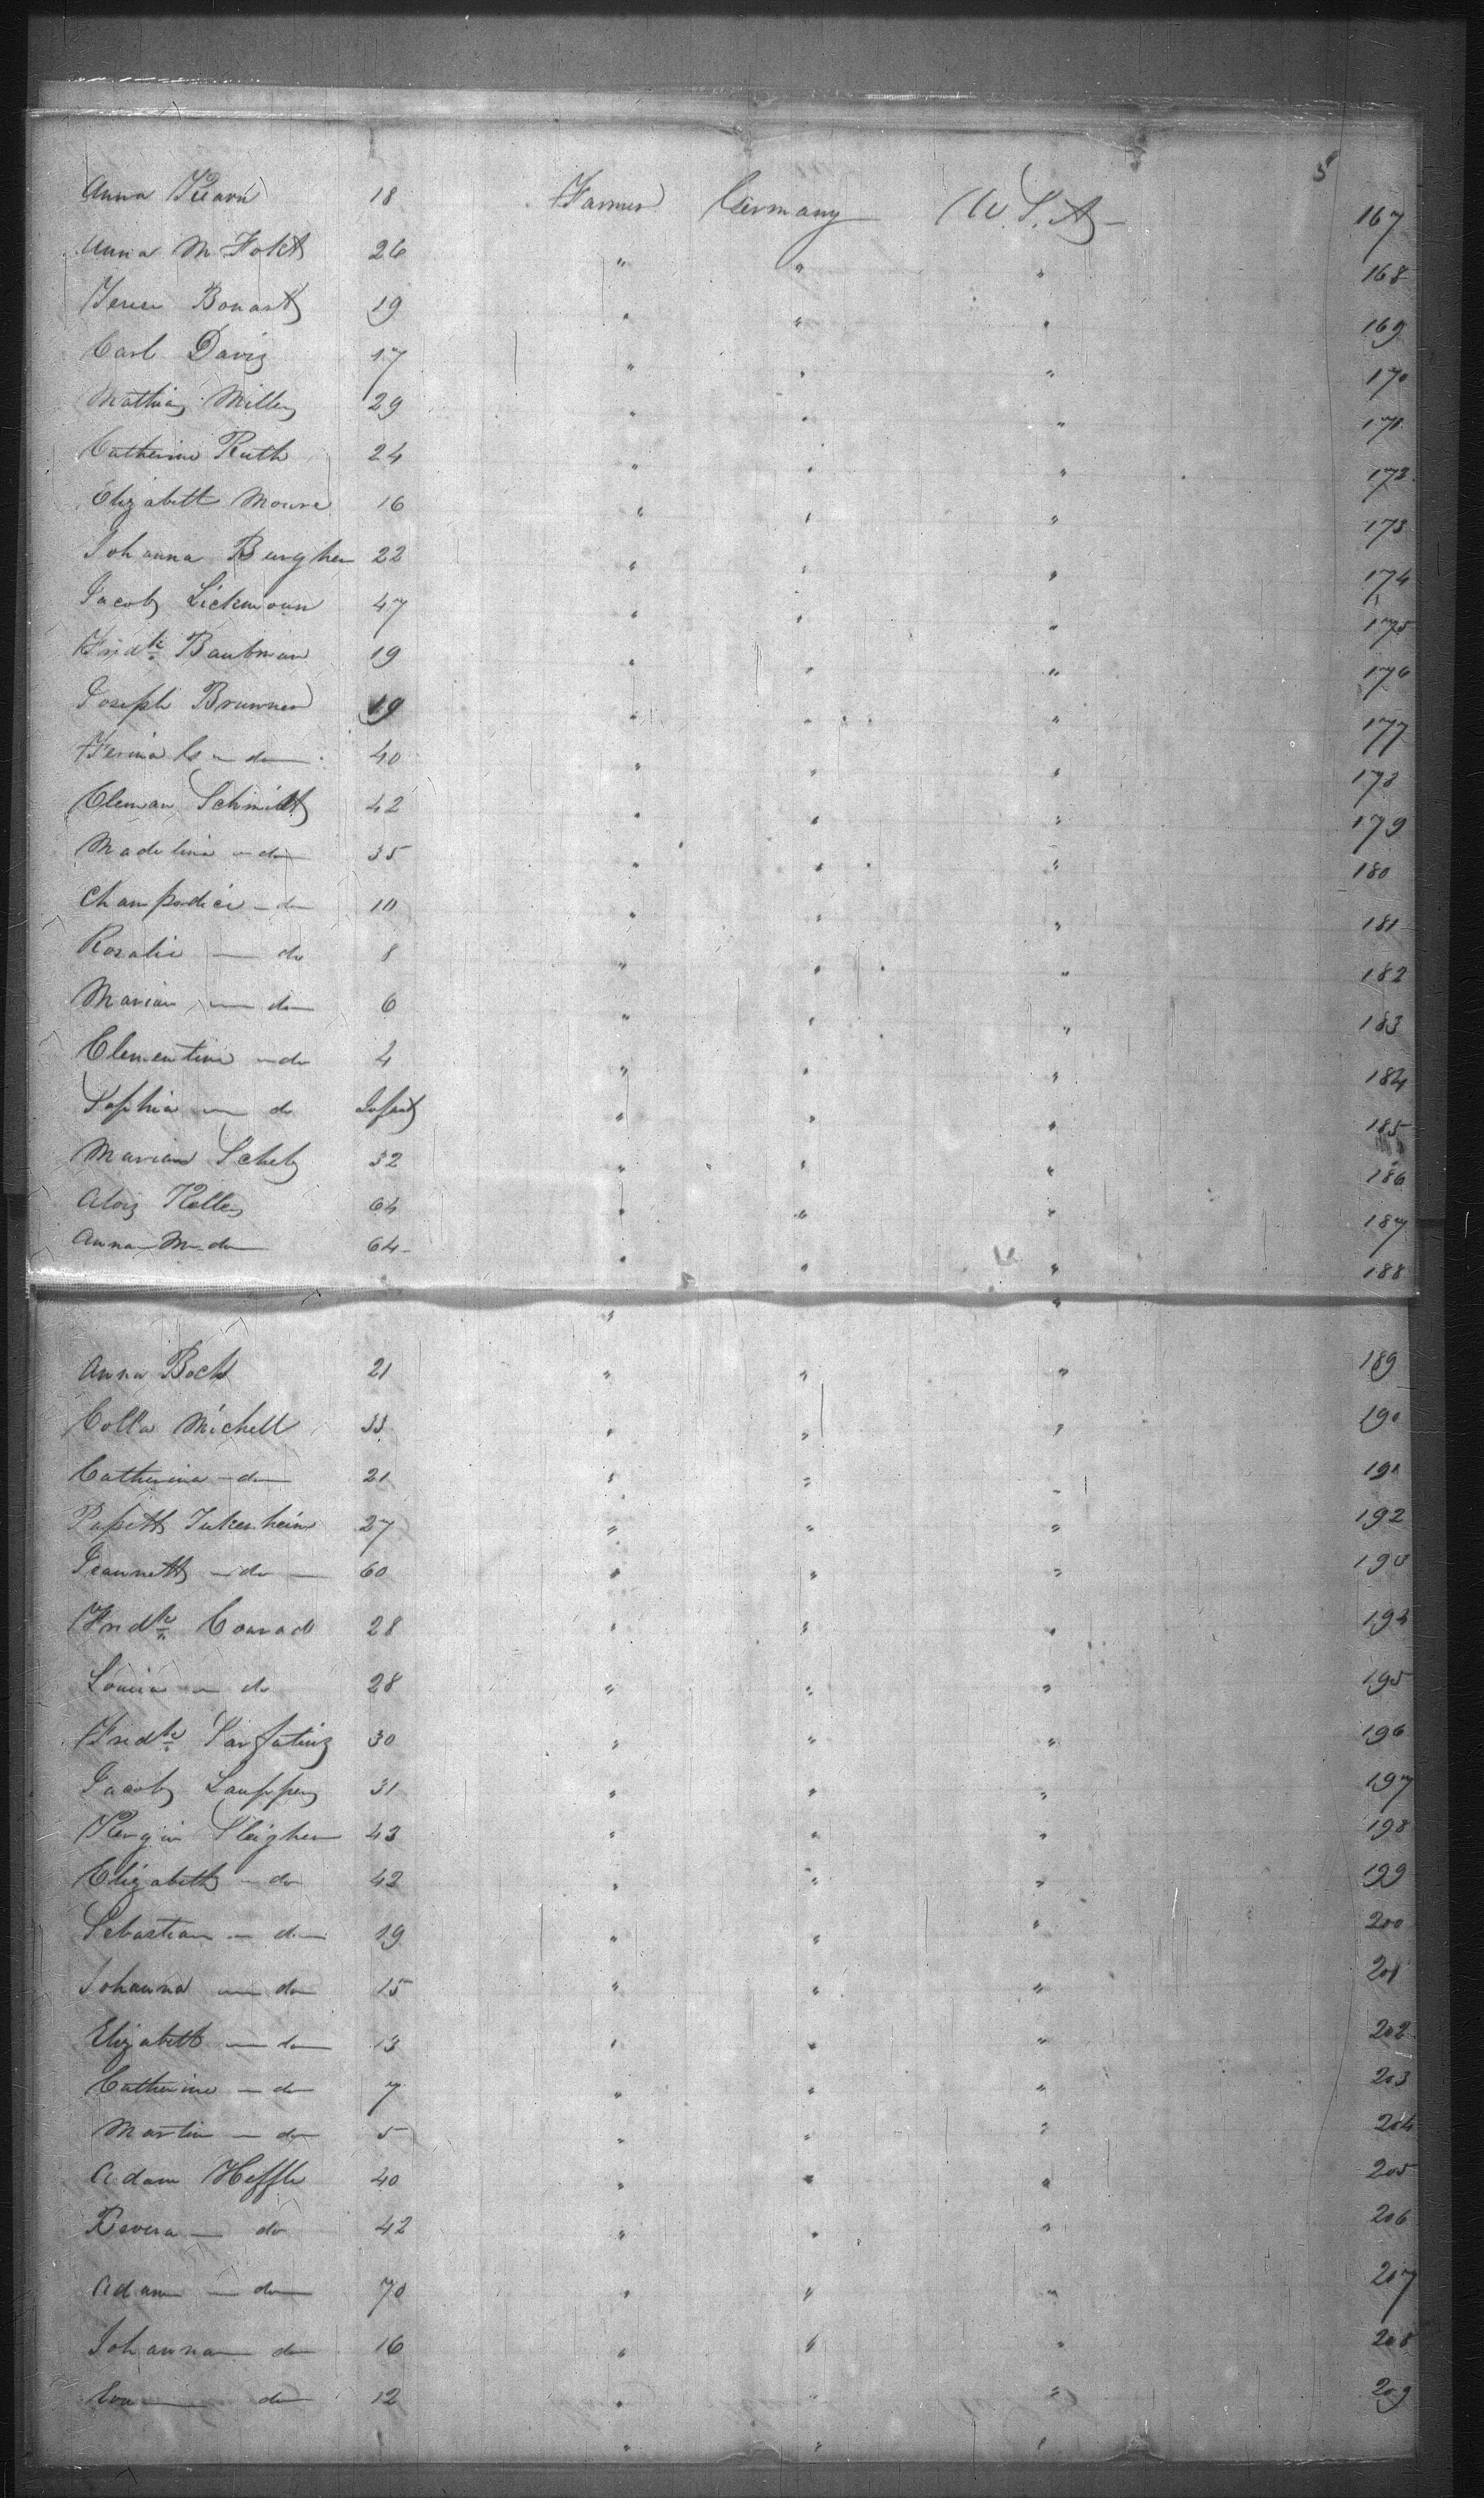 5
Anna Kearn 18 Farmer Germany U.S.A 167
Anna M Fokt 26 " " " 168
Bonart 19 " " " 169
Carl Davis 17 " " " 170
Mathias Miller 29 " " " 171
Catherine Ruth 24 " " " 172
Elizabeth Moure 16 " " " 173
Johanna Burgher 22 " " " 174
Jacob Lickmoun 47 " " " 175
Fridk Baubman 19 " " " 176
Joseph Brunner 19 " " " 177
do 40 " " " 178
Cleman Schmidt 42 " " " 179
Madelina - do 35 " " " 180
do 10 " " " 181
Rosalie - do 8 " " " 182
Marian - do 6 " " " 183
Clementine - do 4 " " " 184
Sophia - do Infant " " " 185
Marian Schely 32 " " " 186
Alois Keller 64 " " " 187
Anna M - do 64 " " " 188
Anna Bock 21 " " " 189
Colla Michell 33 " " " 190
Catherina - do 21 " " " 191
Jukenheim 27 " " " 192
Jeannett - do 60 " " " 193
Fridk Conrad 28 " " " 194
Louisa - do 28 " " " 195
Fredk 30 " " " 196
Jacob Laupper 31 " " " 197
Sleigher 43 " " " 198
Elizabeth - do 42 " " " 199
Sebastian - do 19 " " " 200
Johanna - do 15 " " " 201
Elizabeth - do 13 " " " 202
Catherine - do 7 " " " 203
Martin - do 5 " " " 204
Adam Heffle 40 " " " 205
Revera - do 42 " " " 206
Adam - do 70 " " " 207
Johanna - do 16 " " " 208
Eva - do 12 " " " 209
" " "